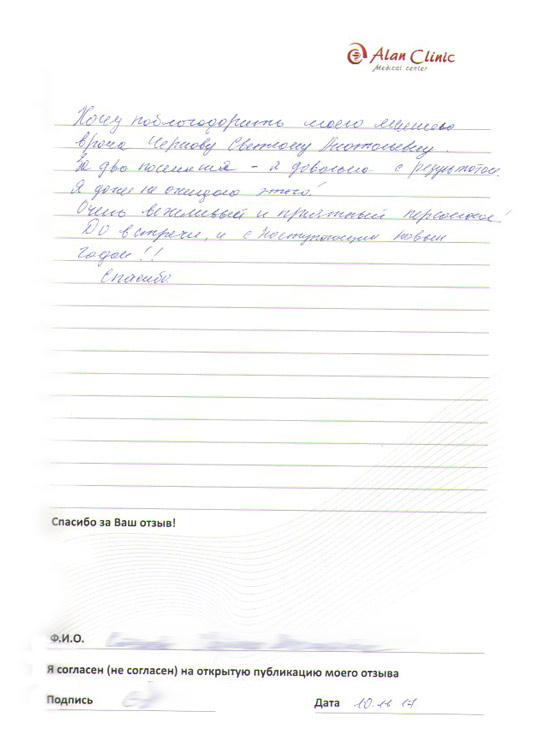 Alan Clinic
Medical center
Хочу поблагодарить моего
врача Чернову Светлану Анатольевну.
За два посещения - я довольна с результатом.
Я даже не ожидала этого!
Очень вежливый и приятный персонал!
До встречи, и с наступающим новым
годом!!
Спасибо
Спасибо за Ваш отзыв!
Ф.И.О.
Я согласен (не согласен) на открытую публикацию моего отзыва
Подпись
Дата 10.11 17